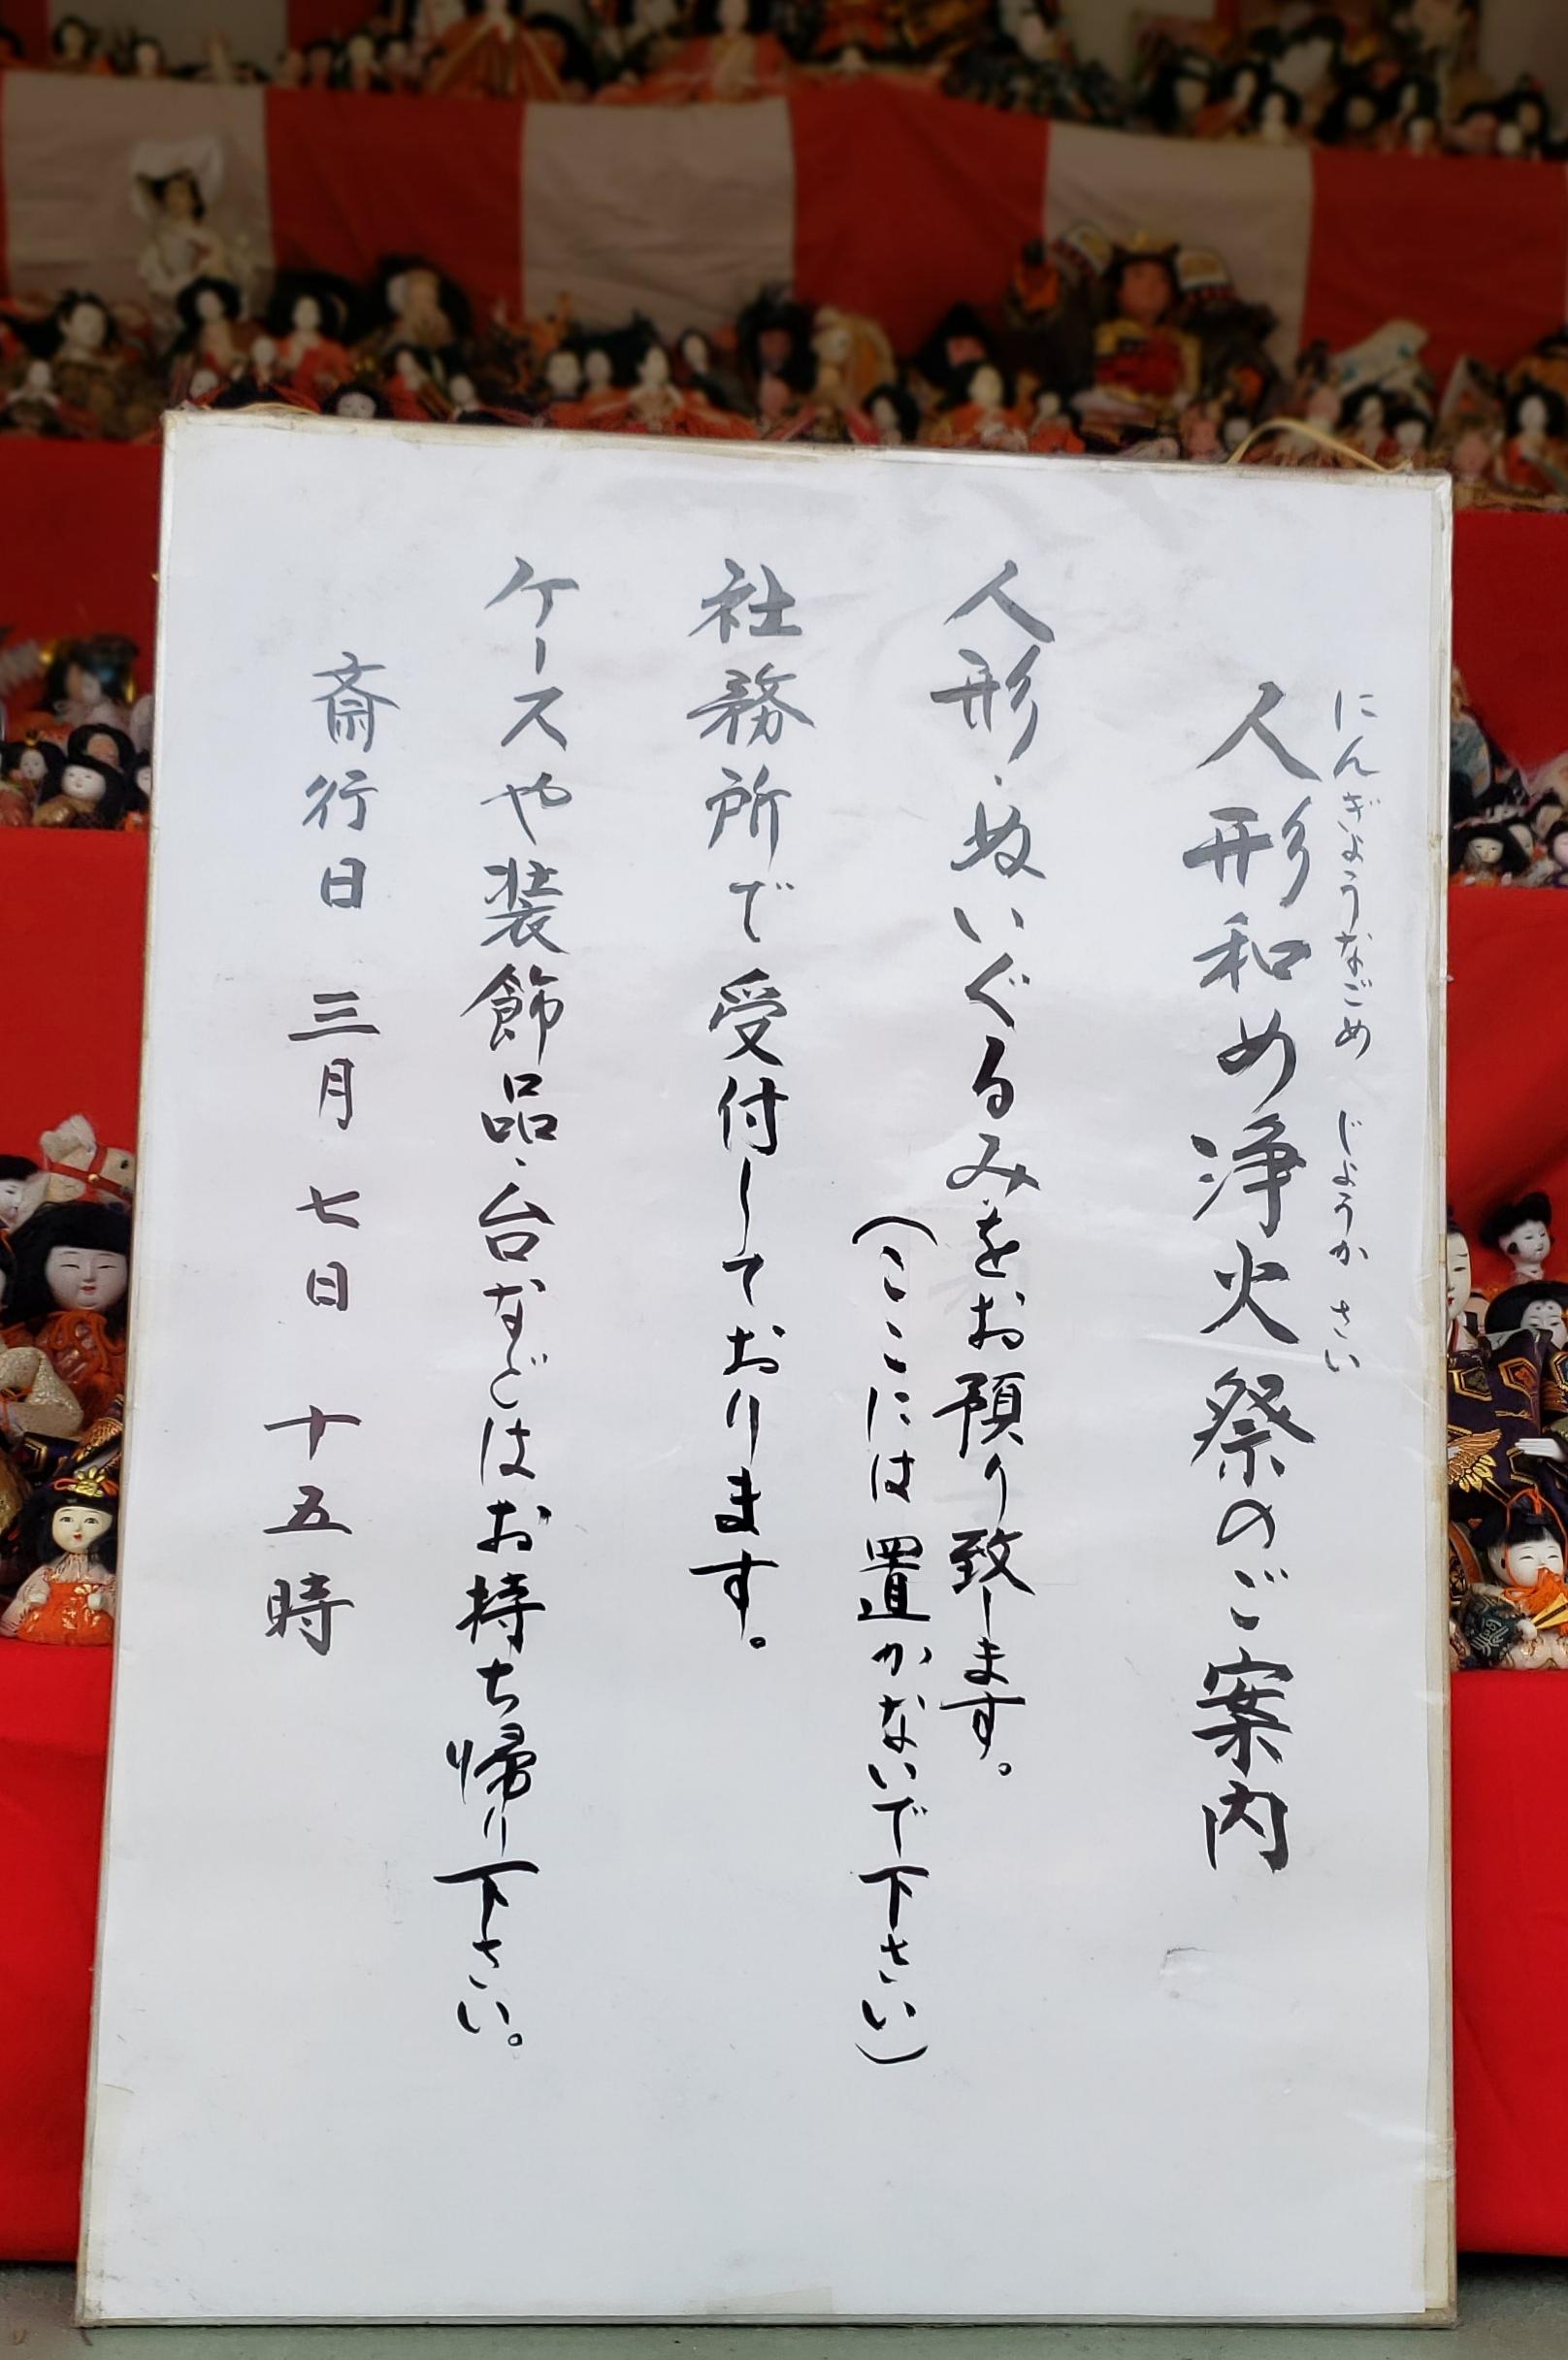 にんぎょうなごめ じょうか さい
人形和め浄火祭のご案内
人形・ぬいぐるみをお預り致します。
(ここには置かないで下さい)
社務所で受付しております。
ケースや装飾品・台などはお持ち帰り下さい。
斎行日 三月七日 十五時